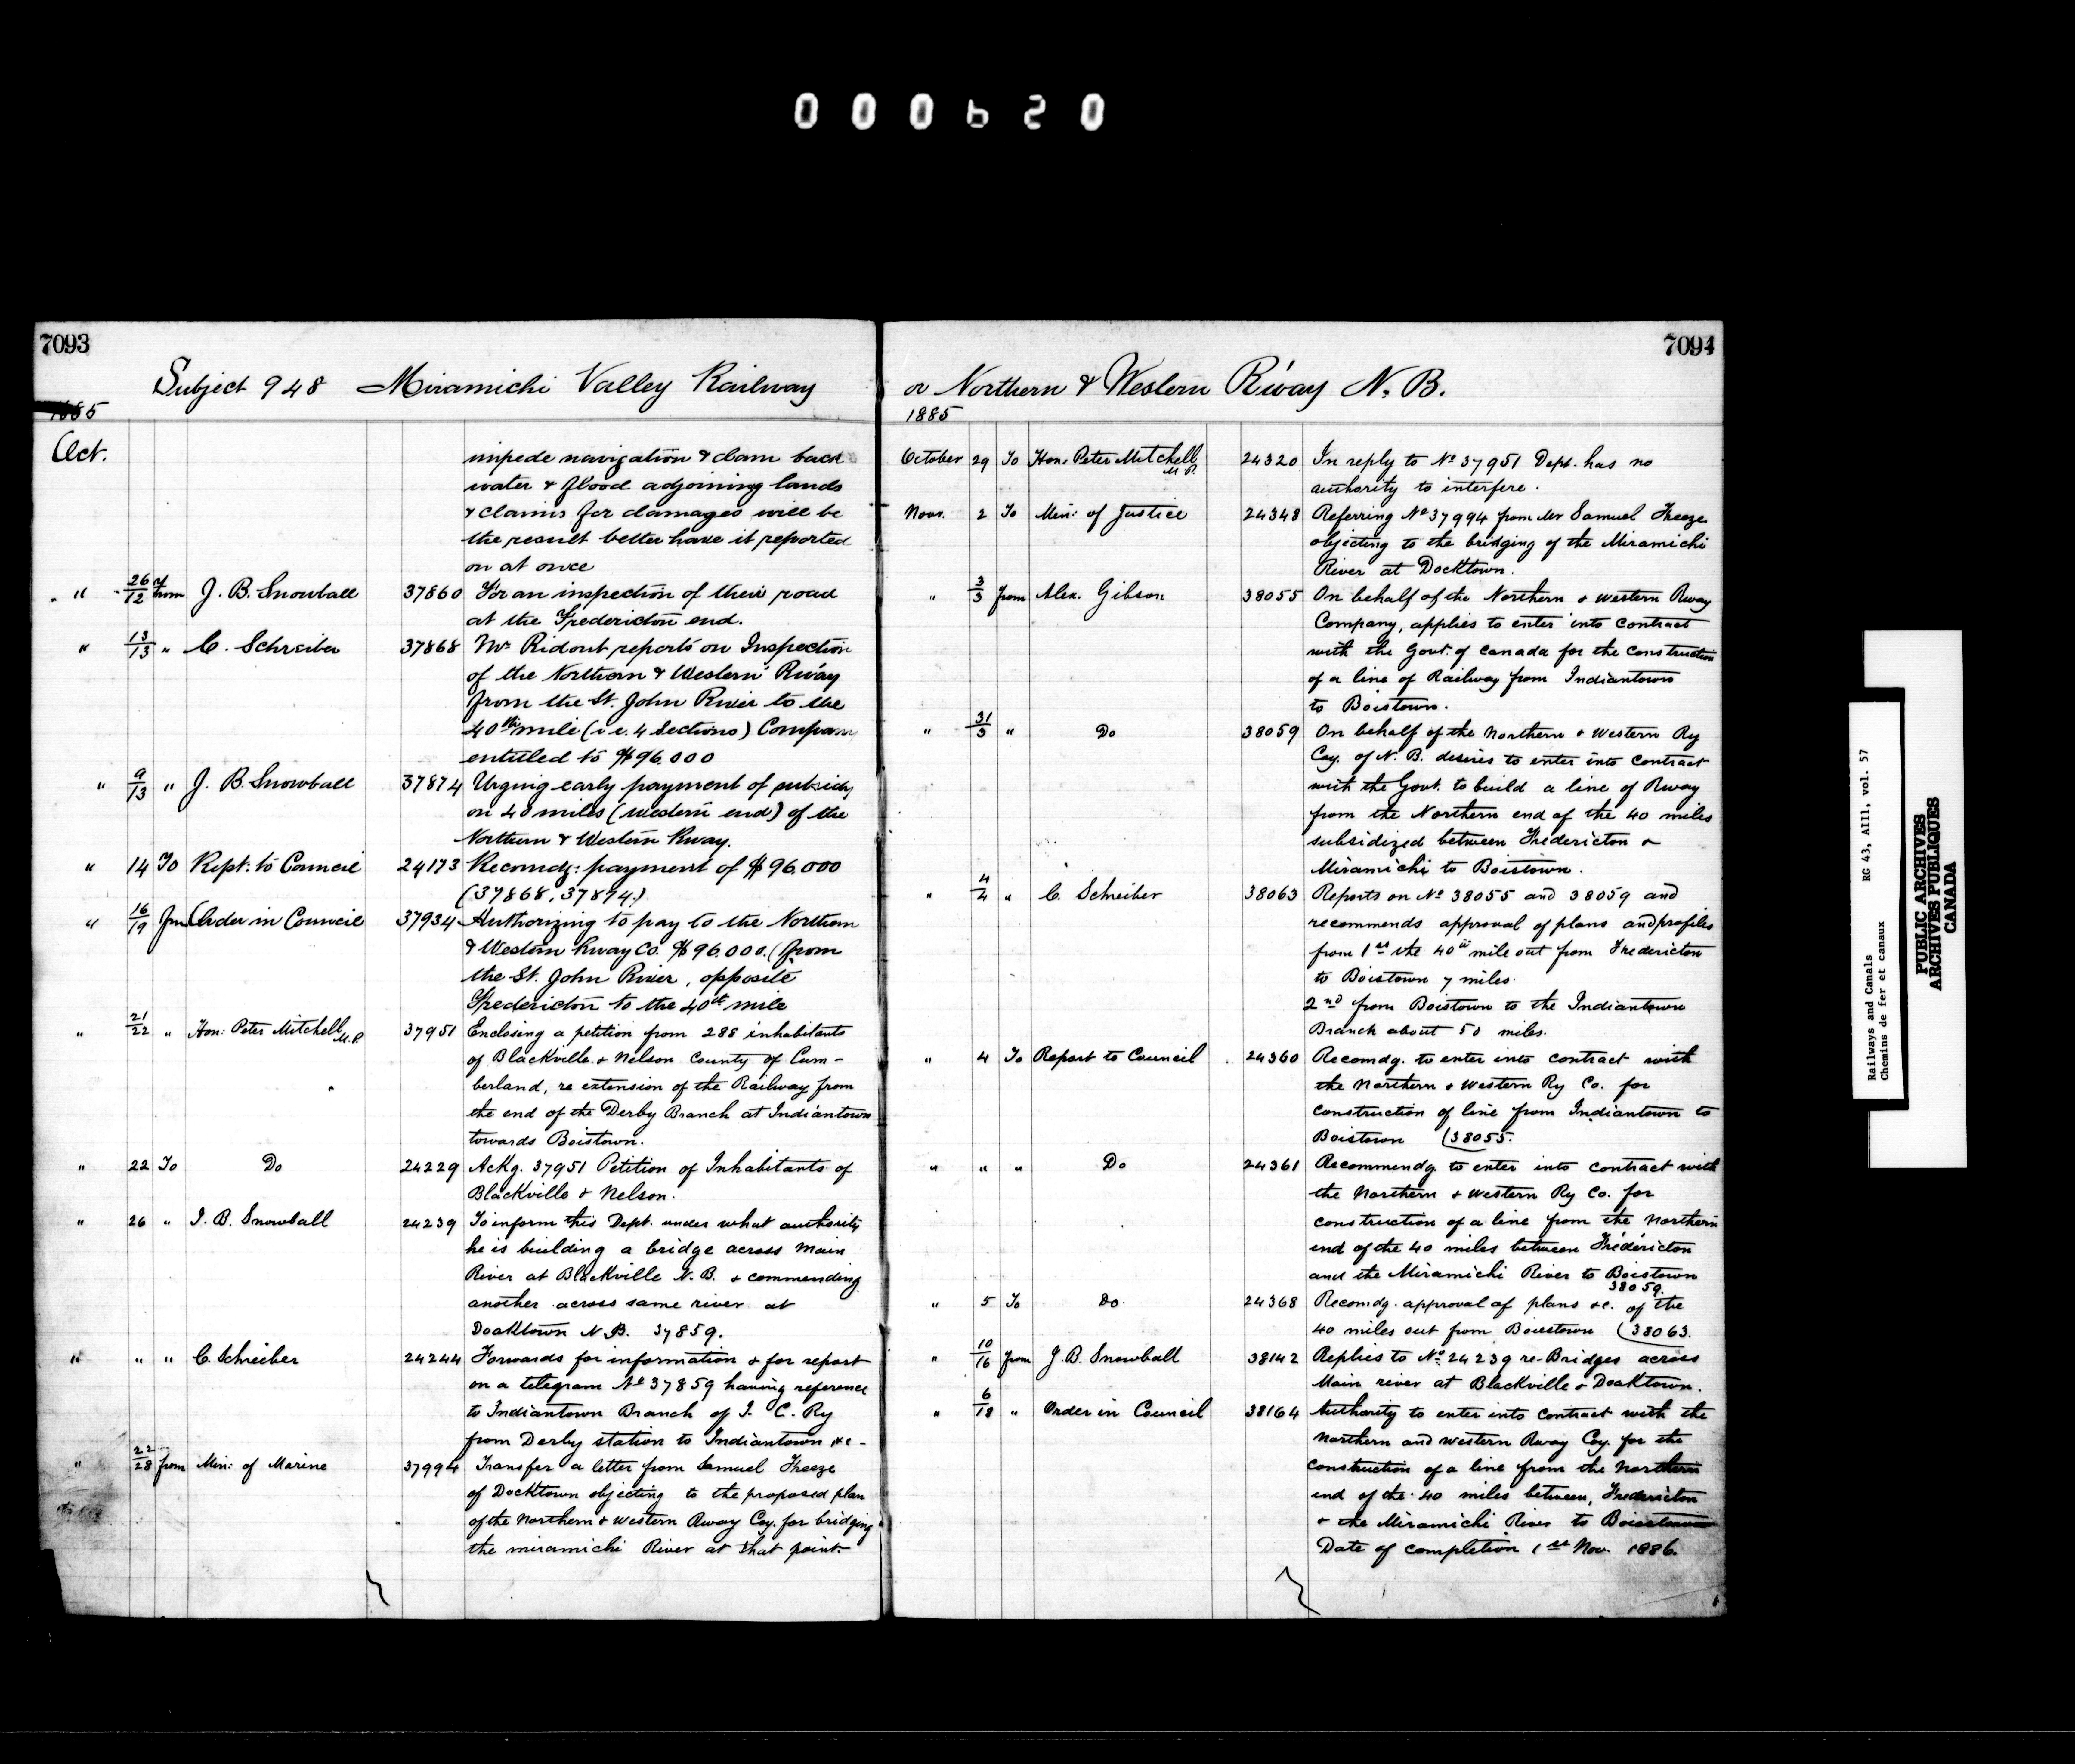 000620
7093
Subject 948 Miramichi Valley Railway
1885
Oct.
impede navigation & dam back
water & flood adjoining lands
& claims for damages will be
the result better have it reported
on at once
" 26/12 from J. B. Snowball 37860 For an inspection of their road
at the Fredericton end.
" 13/13 " C. Schreiber 37868 Mr Ridout reports on Inspection
of the Northern & Western R'way
from the St. John River to the
40th mile (i.e. 4 Sections) Company
entitled to $96.000
" 9/13 " J. B. Snowball 37874 Urging early payment of subsidy
on 40 miles (Western end) of the
Northern & Western Rway.
" 14 To Rept: to Council 24173 Recomdg: payment of $96.000
(37868, 37874.)
" 16/19 fm Order in Council 37934 Authorizing to pay to the Northern
& Western Rway Co. $96.000. (from
the St. John River, opposite
Fredericton to the 40th mile
" 21/22 " Hon: Peter Mitchell M.P. 37951 Enclosing a petition from 288 inhabitants
of Blackville & Nelson County of Cum-
berland, re extension of the Railway from
the end of the Derby Branch at Indiantown
towards Boistown.
" 22 To Do 24229 Ackg. 37951 Petition of Inhabitants of
Blackville & Nelson.
" 26 " J. B. Snowball 24239 To inform this Dept. under what authority
he is building a bridge across Main
River at Blackville N.B. & commending
another across same river at
Doaktown N.B. 37859.
" " " C. Schreiber 24244 Forwards for information & for report
on a telegram No 37859 having reference
to Indiantown Branch of I. C. Ry
from Derby station to Indiantown &c-
" 22/28 from Min: of Marine 37994 Transfer a letter from Samuel Freeze
of Docktown objecting to the proposed plan
of the Northern & Western Rway Coy. for bridging
the miramichi River at that point.
7094
or Northern & Western R'way N. B.
1885
October 29 To Hon. Peter Mitchell M.P. 24320 In reply to No 37951 Dept. has no
authority to interfere.
Novr. 2 To Min: of Justice 24348 Referring No 37994 from Mr Samuel Freeze
objecting to the bridging of the Miramichi
River at Docktown.
" 3/3 from Alex. Gibson 38055 On behalf of the Northern & Western Rway
Company, applies to enter into contract
with the Govt. of Canada for the construction
of a line of Railway from Indiantown
to Boistown.
" 31/3 " Do 38059 On behalf of the Northern & Western Ry
Coy. of N. B. desires to enter into contract
with the Govt. to build a line of Rway
from the Northern end of the 40 miles
subsidized between Fredericton &
Miramichi to Boistown.
" 4/4 " C. Schreiber 38063 Reports on No 38055 and 38059 and
recommends approval of plans and profiles
from 1st the 40th mile out from Fredericton
to Boistown 7 miles.
2nd from Boistown to the Indiantown
Branch about 50 miles.
" 4 To Report to Council 24360 Recomdg. to enter into contract with
the Northern & Western Ry Co. for
construction of line from Indiantown to
Boistown (38055.
" " " Do 24361 Recommendg to enter into contract with
the Northern & Western Ry Co. for
construction of a line from the Northern
end of the 40 miles between Fredericton
and the Miramichi River to Boistown
38059.
" 5 To Do. 24368 Recomdg. approval of plans &c. of the
40 miles out from Boiestown (38063.
" 10/16 from J. B. Snowball 38142 Replies to No. 24239 re-Bridges across
Main river at Blackville & Doaktown.
" 6/18 " Order in Council 38164 Authority to enter into contract with the
Northern and Western Rway Coy. for the
construction of a line from the Northern
end of the 40 miles between, Fredericton
& the Miramichi River to Boiestown
Date of completion 1st Nov. 1886.
Railways and Canals
Chemins de fer et canaux
RG 43, AIII, vol. 57
PUBLIC ARCHIVES
ARCHIVES PUBLIQUES
CANADA